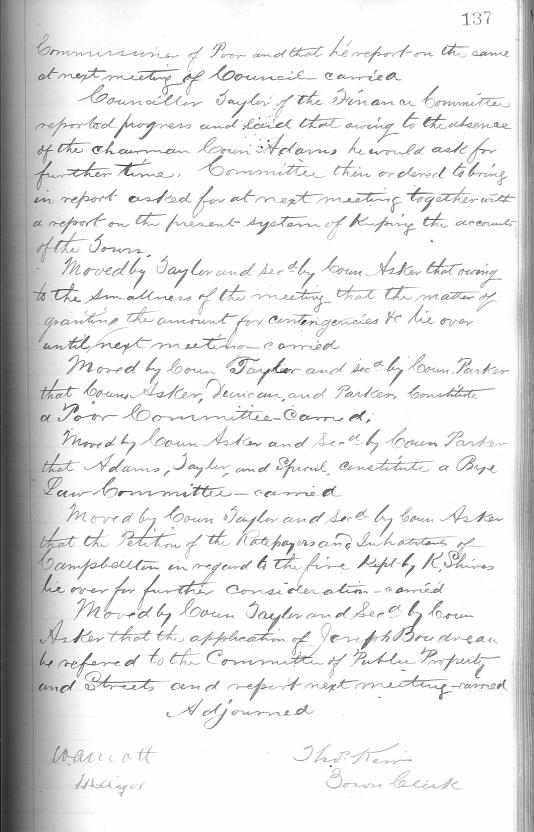 137
Commissioner of Poor and that he report on the same
at next meeting of Council - carried
Councillor Taylor of the Finance Committee
reported progress and said that owing to the absence
of the chairman Coun Adams he would ask for
further time. Committee then ordered to bring
in report asked for at next meeting together with
a report on the present system of Keeping the accounts
of the Town.
Moved by Taylor and secd by Coun Asker that owing
to the smallness of the meeting that the matter of
granting the amount for contingencies &c lie over
until next meeting - carried
Moved by Coun Taylor and secd by Coun. Parker
that Couns Asker, Duncan, and Parker, Constitute
a Poor Committee - Carried.
Moved by Coun Asker and Secd by Coun Parker
that Adams, Taylor, and Sproul, constitute a Bye
Law Committee - carried
Moved by Coun Taylor and Secd by Coun Asker
that the Petition of the Ratepayers and Inhabitants of
Campbellton in regard to the fire Kept by K. Shives
lie over for further consideration - carried
Moved by Coun Taylor and Secd by Coun
Asker that the application of Joseph Boudreau
be refered to the Committee of Public Property
and Streets and report next meeting - carried
Adjourned
Mayor
Thos. Kerr
Town Clerk